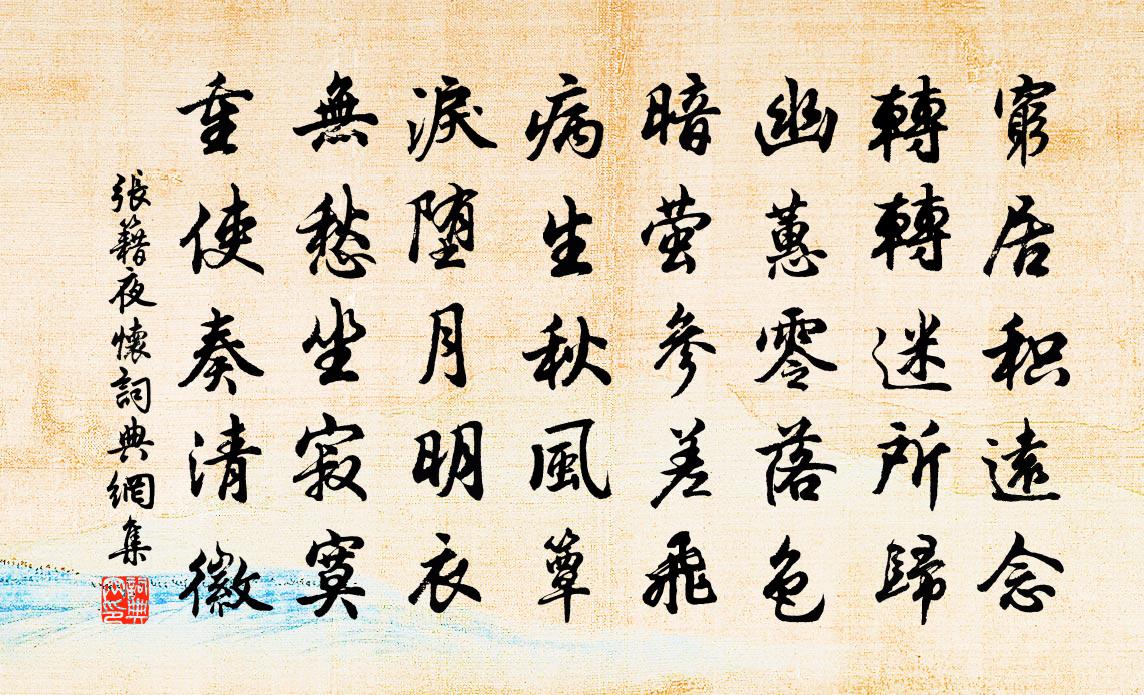 窮居积遠念
轉轉迷所歸
幽蕙零落色
暗萤參差飛
病生秋風簟
淚堕月明衣
無愁坐寂寞
重使奏清徽
張籍夜懷詞典網集